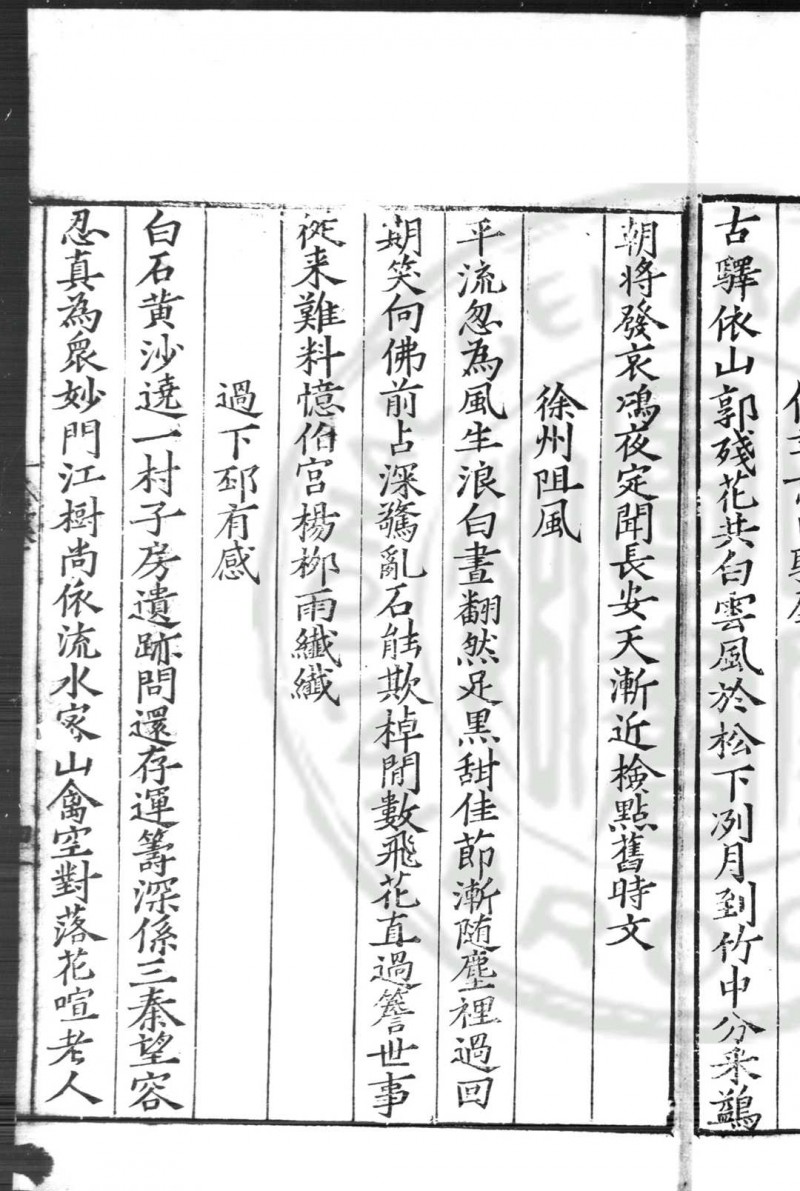 古驛依山郭殘花共白雲風於松下冽月到竹中分采鷁
朝將發哀鴻夜定聞長安天漸近檢點舊時文
徐州阻風
平流忽為風生浪白晝翻然足黑甜佳節漸随塵裡過回
期笑向佛前占深驚亂石能欺棹閒數飛花直過簷世事
從来難料憶伯宮楊柳雨纖纖
過下邳有感
白石黄沙遶一村子房遺跡問還存運籌深係三秦望容
忍真為眾妙門江樹尚依流水家山禽空對落花喧老人